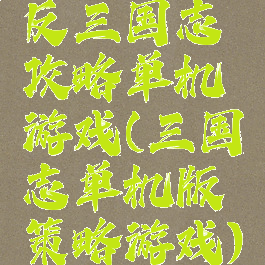 反三国志
攻略单机
游戏(三国
志单机版
策略游戏)